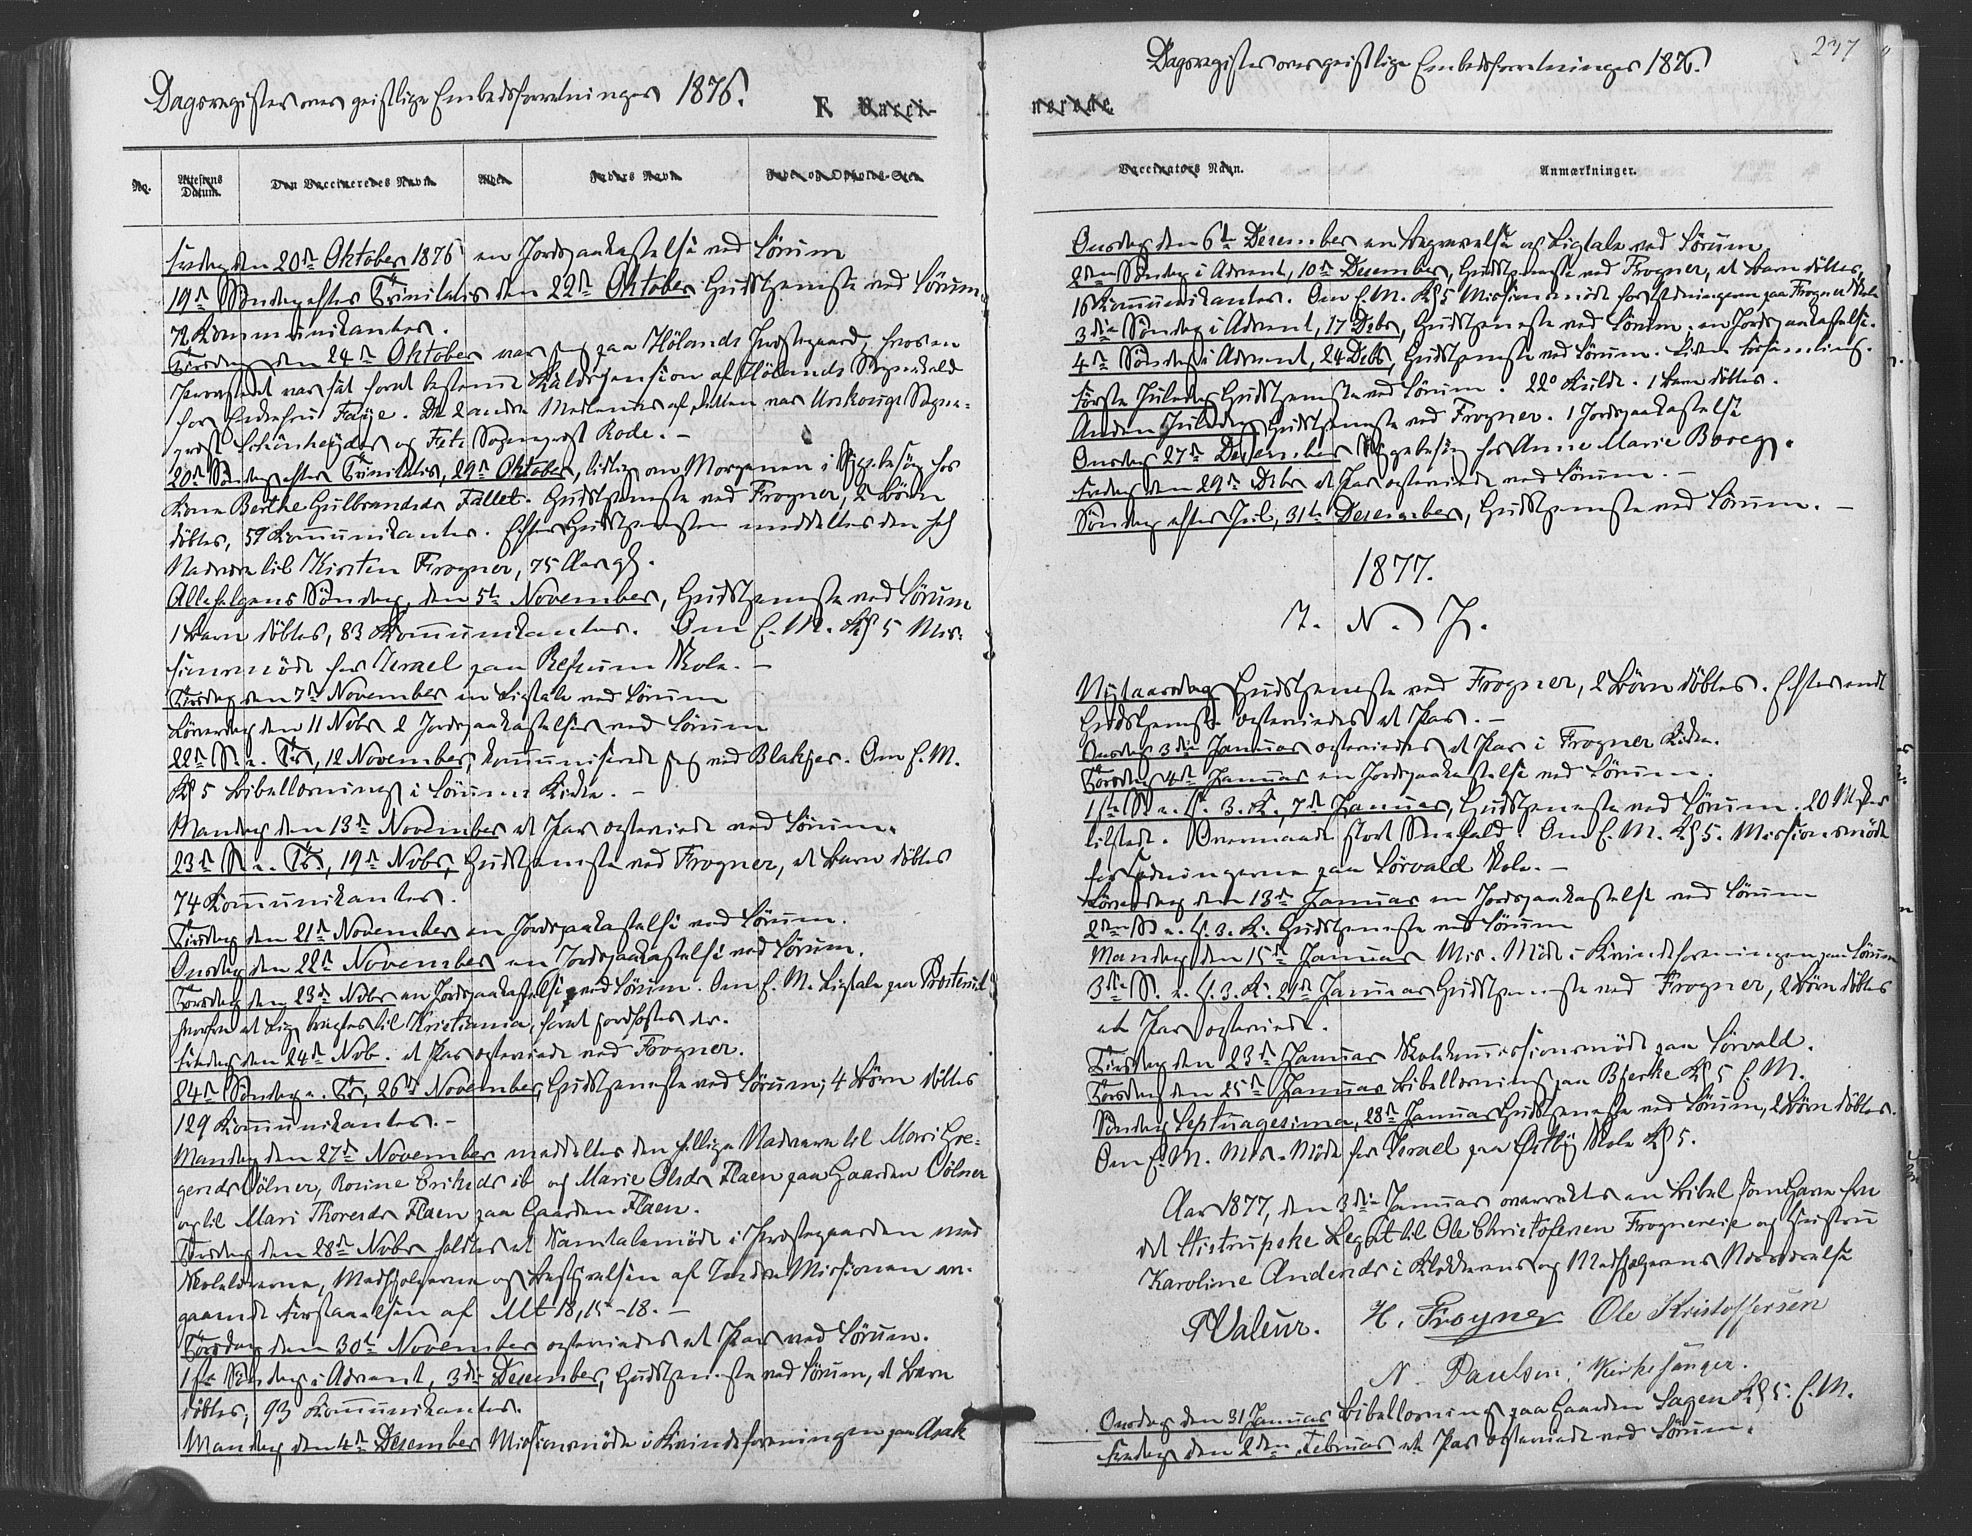 Dagsregister over geistlige Embedsforretninger 1876.
F. Vacci-
No.
Attestens Datum.
Den Vaccineredes Navn
Alder
Faders Navn
Føde- og Opholds-Sted
Fredag den 20de Oktober 1876 en Jordpaakastelse ved Sörum
19de Söndag efter Trinitatis den 22de Oktober Gudstjeneste ved Sörum
72 Kommunikanter.
Tirsdag den 24de Oktober var jeg paa Hölands Prestegaard, hvor en
Provsteret var sat for at bestemme Naadspension af Hölands Sognekald
for Enkefru Faÿe. De 2 andre Medlemmer af Retten var Urskougs Sogne-
prest Schönheyder og Fets Sogneprest Rode. -
20de Söndag efter Trinitatis, 29de Oktober, tidlig om Morgenen i Sygebesög hos
Kone Berthe Gulbrandsdr Fallet. Gudstjeneste ved Frogner, 2 Börn
döbtes, 59 Kommunikanter. Efter Gudstjenesten meddeltes den hell
Nadvere til Kirsten Frogner, 75 Aar gl.
Allehelgens Söndag, den 5te November, Gudstjeneste ved Sörum
1 Barn döbtes, 83 Kommunikanter. Om E. M. Kl 5 Mis-
sionsmöde for Israel paa Refsum Skole. -
Tirsdag den 7de November en Ligtale ved Sörum
Löverdag den 11 Nvbr 2 Jordpaakastelser ved Sörum
22de S. e. Tr., 12 November, kommunicerede jeg ved Blakjer. Om E. M.
Kl 5 Bibellæsning i Sörum Kirke. -
Mandag den 13de November et Par ægteviede ved Sörum.
23de S. e. Tr., 19de Nvbr, Gudstjeneste ved Frogner, et Barn döbtes
74 Kommunikanter.
Tirsdag den 21de November en Jordpaakastelse ved Sörum.
Onsdag den 22de November en Jordpaakastelse ved Sörum.
Torsdag den 23de Nvbr en Jordpaakastelse ved Sörum. Om E. M. Ligtale paa Prosterud
hvorfra et Lig bragtes til Kristiania, for at jordfæstes der.
Fredag den 24de Nvb. et Par ægteviede ved Frogner.
24de Söndag e. Tr, 26de November, Gudstjeneste ved Sörum; 4 Börn döbtes
129 Kommunikanter. -
Mandag den 27de November meddeltes den hellige Nadvere til Mari Gre-
gersdr Cölner, Rosine Eriksdr ib og Marie Olsdr Flaen paa Gaarden Cölner
og til Mari Thoresdr Flaen paa Gaarden Flaen.
Tirsdag den 28de Nvbr holdtes et Samtalemöde i Prestegaarden med
Skolelærerne, Medhjelperne og Bestyrelsen af Indre Missionen an-
gaaende Forstaaelsen af Mt 18, 15-18. -
Torsdag den 30te November ægteviedes et Par ved Sörum.
1ste Söndag i Advent, 3die Desember, Gudstjeneste ved Sörum, et Barn
döbtes, 93 Kommunikanter.
Mandag den 4de Desember Missionsmöde i Kvindeforeningen paa Asak
Dagsregister over geistlige Embedsforretninger 1876.
237
nerede.
Vaccinators Navn.
Anmærkninger.
Onsdag den 6te Desember en Begravelse og Ligtale ved Sörum.
2den Söndag i Advent, 10de Desember, Gudstjeneste ved Frogner, et Barn döbtes,
16 Kommunikanter. Om E. M. Kl 5 Missionsmöde for Hedningerne paa Frogner Skole
3die Söndag i Advent, 17 Dcbr, Gudstjeneste ved Sörum. en Jordpaakastelse.
4de Söndag i Advent, 24 Dcbr, Gudstjeneste ved Sörum. Liden Forsamling.
Förste Juledag Gudstjeneste ved Sörum. 22° Kulde. 1 Barn döbtes.
Anden Juledag Gudstjeneste ved Frogner. 1 Jordpaakastelse
Onsdag 27de Desember Sygebesög hos Anne Marie Boreg.
Fredag den 29de Dcbr et Par ægteviede ved Sörum. -
Söndag efter Jul, 31te Desember, Gudstjeneste ved Sörum. -
1877.
I. N. J.
Nytaarsdag Gudstjeneste ved Frogner, 2 Börn döbtes. Efter endt
Gudstjeneste ægteviedes et Par. -
Onsdag 3die Januar ægteviedes et Par i Frogner Kirke.
Torsdag 4de Januar en Jordpaakastelse ved Sörum.
1ste S. e. H. 3. K. 7de Januar, Gudstjeneste ved Sörum. 20 Msker
tilstede. Overmaade stort Snefald. Om E. M. Kl 5. Missionsmöde
for Hedningerne paa Sörvald Skole. -
Löverdag den 13de Januar en Jordpaakastelse ved Sörum
2den S. e. H. 3. K. Gudstjeneste ved Sörum
Mandag den 15de Januar Mis. Möde i Kvindeforeningen paa Sörum
3die S. e. H. 3. K. 21de Januar Gudstjeneste ved Frogner, 2 Börn döbtes
et Par ægteviede.
Tirsdag den 23de Januar Skolekommissionsmöde paa Sörvald.
Torsdag den 25de Januar Bibellæsning paa Bjerke Kl 5 E. M.
Söndag Septuagesima, 28de Januar Gudstjeneste ved Sörum, 2 Börn döbtes.
Om E. M. Mis. Möde for Israel paa Østby Skole Kl 5.
Aar 1877, den 3die Januar overraktes en Bibel som Gave fra
det Histrupske Legat til Ole Christofersen Frognereie og Hustru
Karoline Andersdr i Klokkerens og Medhjelperens Nærværelse
PValeur. H. Frogner Ole Kristoffersen
N. Paulsen, Kirkesanger.
Onsdag den 31 Januar Bibellæsning paa Gaarden Sagen Kl 5. E. M.
Fredag den 2den Februar et Par ægteviede ved Sörum.